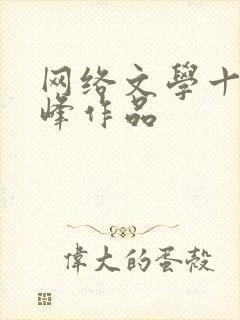 网络文學十
峰作品
偉大的蛋殼